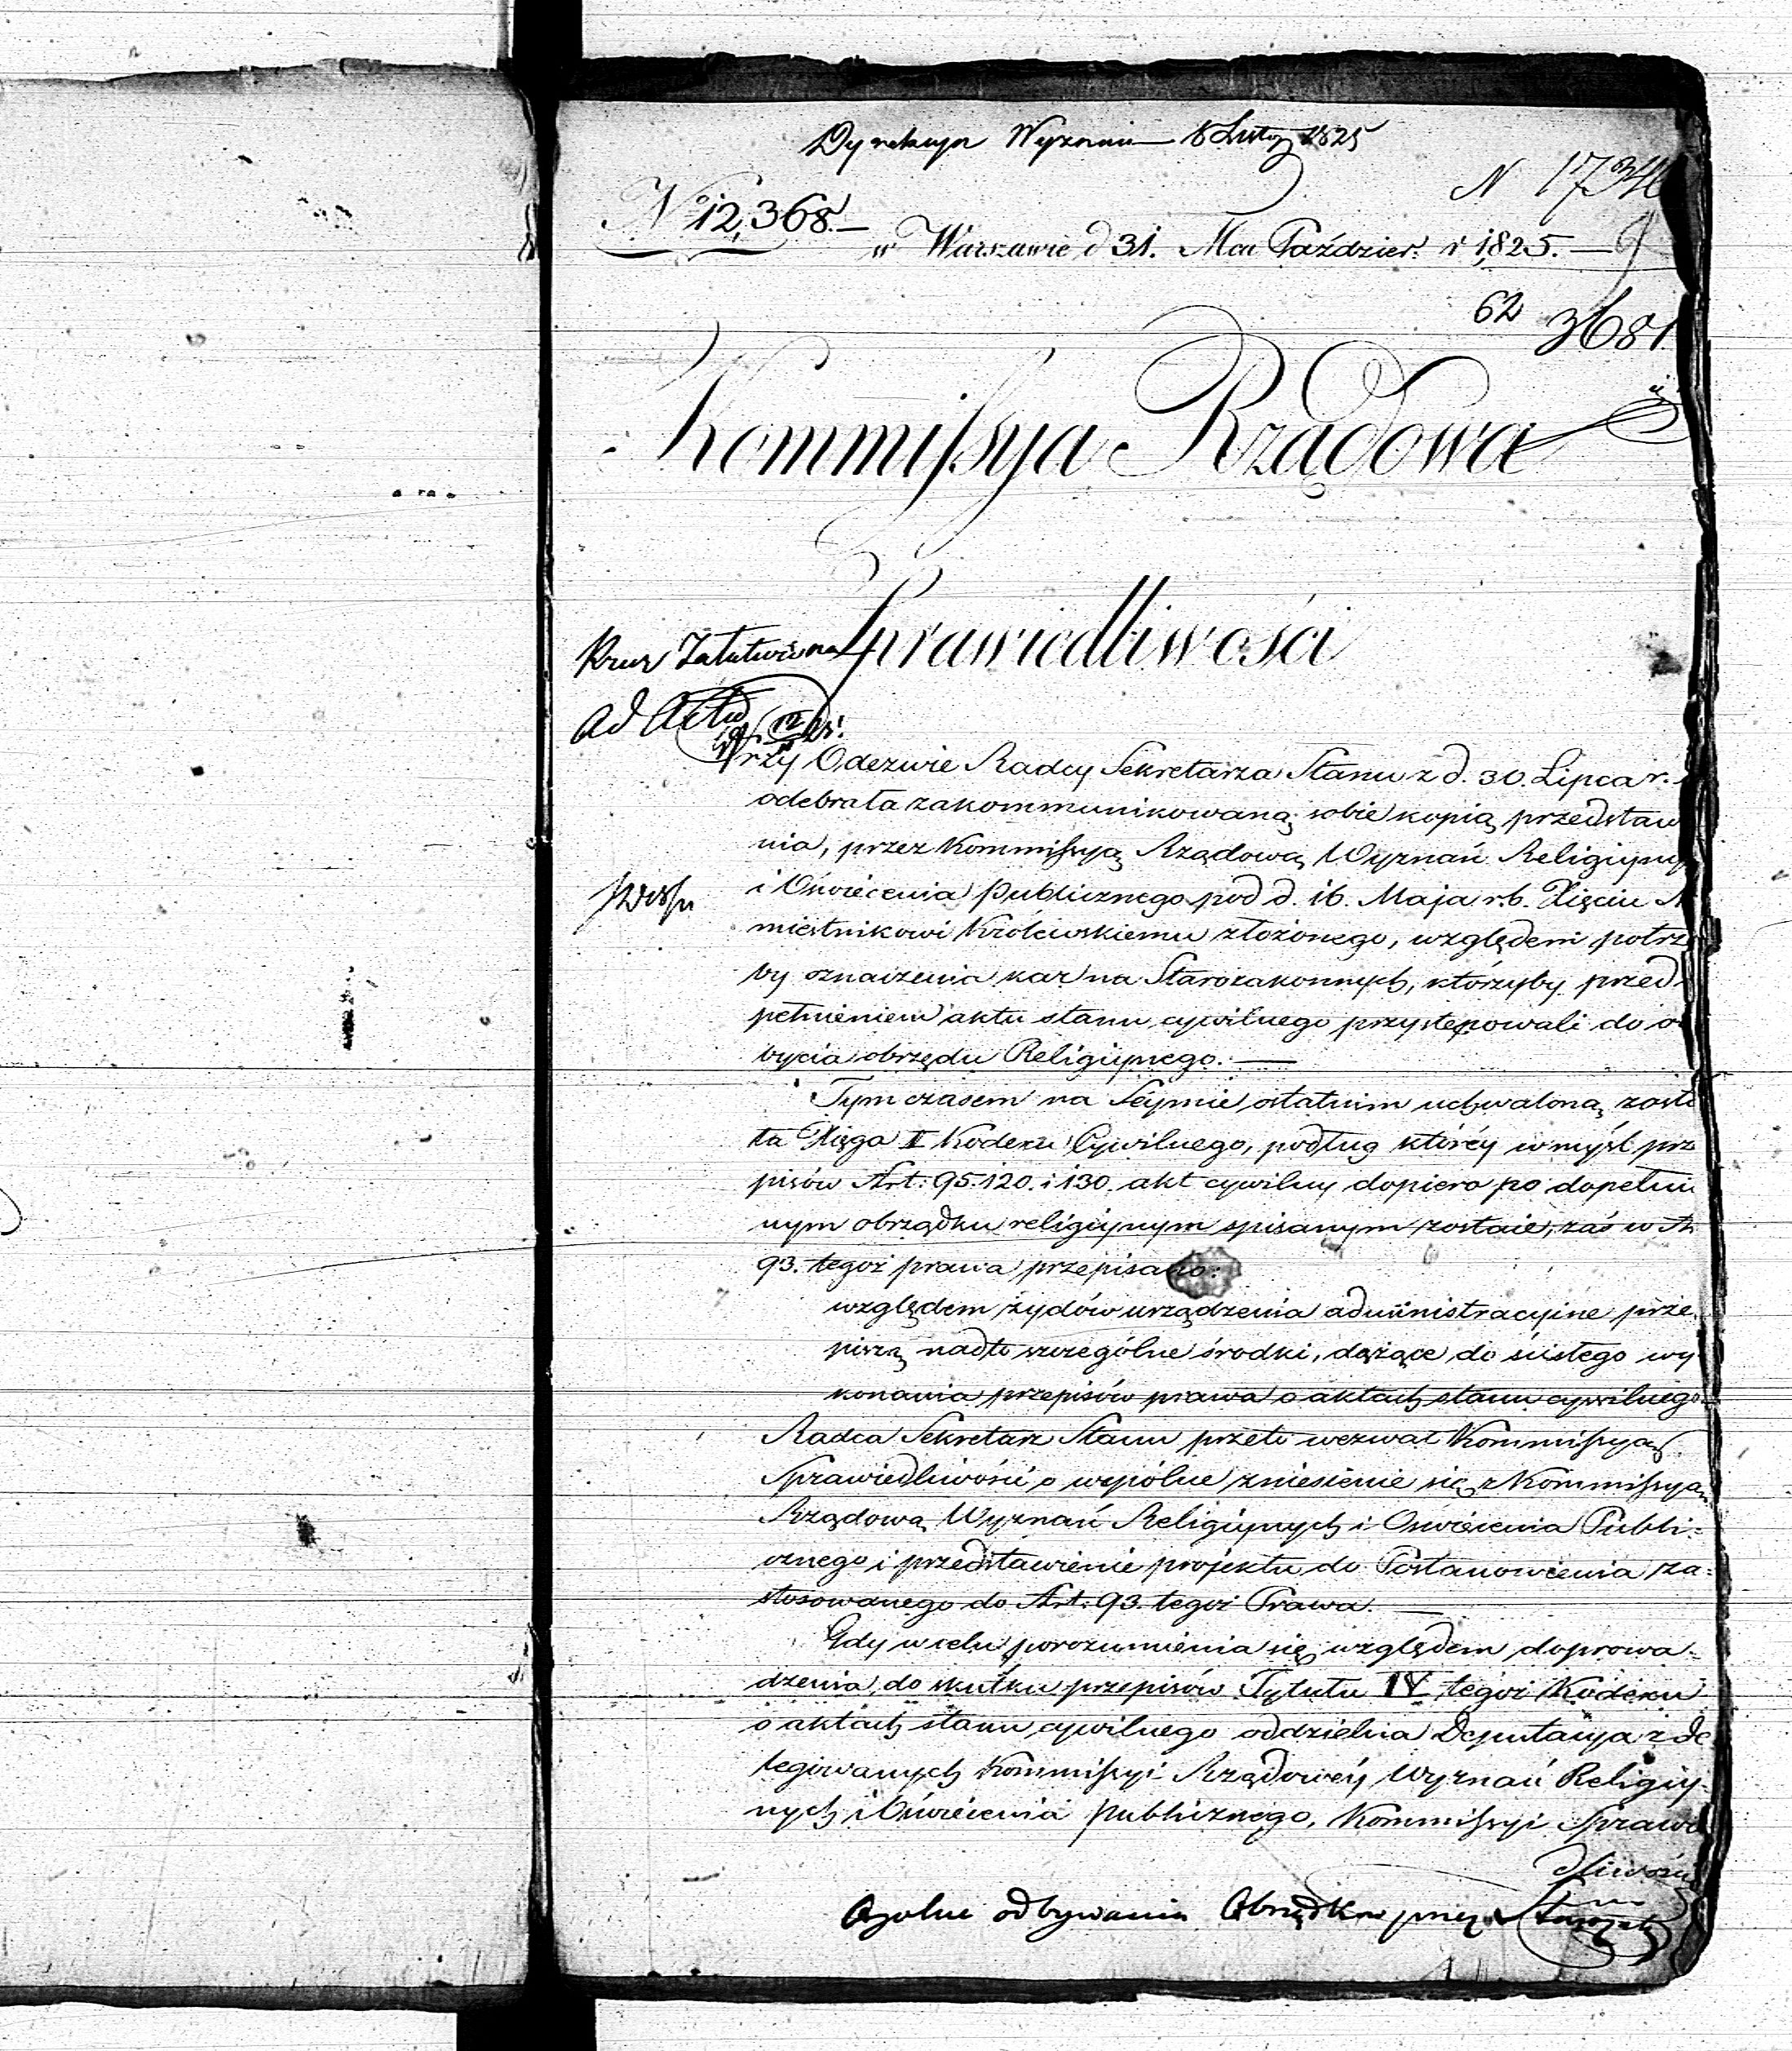 Dyrekcya Wyznań — 8 Listop 1825
N 1734
No 12,368. —
w Warszawie d 31. Mca Paździer: r 1825. —
62
3681
Kommissya Rządowa
Sprawiedliwości
Przez Załatwione
Ad Acta
Przy Odezwie Radcy Sekretarza Stanu z d. 30. Lipca r.
odebrała zakommunikowaną sobie kopią przedstaw
nia, przez Kommissyą Rządową Wyznań Religiyny
i Oświecenia Publicznego pod d. 16. Maja r.b. Xięciu N
miestnikowi Królewskiemu złożonego, względem potrze
by oznaczenia kar na Starozakonnych, którzyby przed
pełnieniem aktu stanu cywilnego przystępowali do o
bycia obrzędu Religiynego. —
Tymczasem na Seymie ostatnim uchwaloną zosta
ła Xięga I Kodexu Cywilnego, podług któréy w myśl prze
pisów Art: 95. 120. i 130. akt cywilny dopiero po dopełnio
nym obrządku religiynym spisanym zostaie, zaś w Ar
93. tegoż prawa przepisano:
względem żydów urządzenia administracyine prze
piszą nadto szczególne środki, dążące do ścisłego wy
konania przepisów prawa o aktach stanu cywilnego
Radca Sekretarz Stanu przeto wezwał Kommissyą
Sprawiedliwości o wspólne zniesienie się z Kommissyą
Rządową Wyznań Religiynych i Oświecenia Publi=
cznego i przedstawienie projektu do Postanowienia za=
stosowanego do Art: 93. tegoż Prawa. —
Gdy w celu porozumienia się względem doprowa=
dzenia do skutku przepisów Tytułu IV tegoż Kodexu
o aktach stanu cywilnego oddzielna Deputacya z de
legowanych Kommissyi Rządowéy Wyznań Religiy=
nych i Oświecenia Publicznego, Kommissyi Sprawie
dliwości
odbywania Obrządków przez Starozak